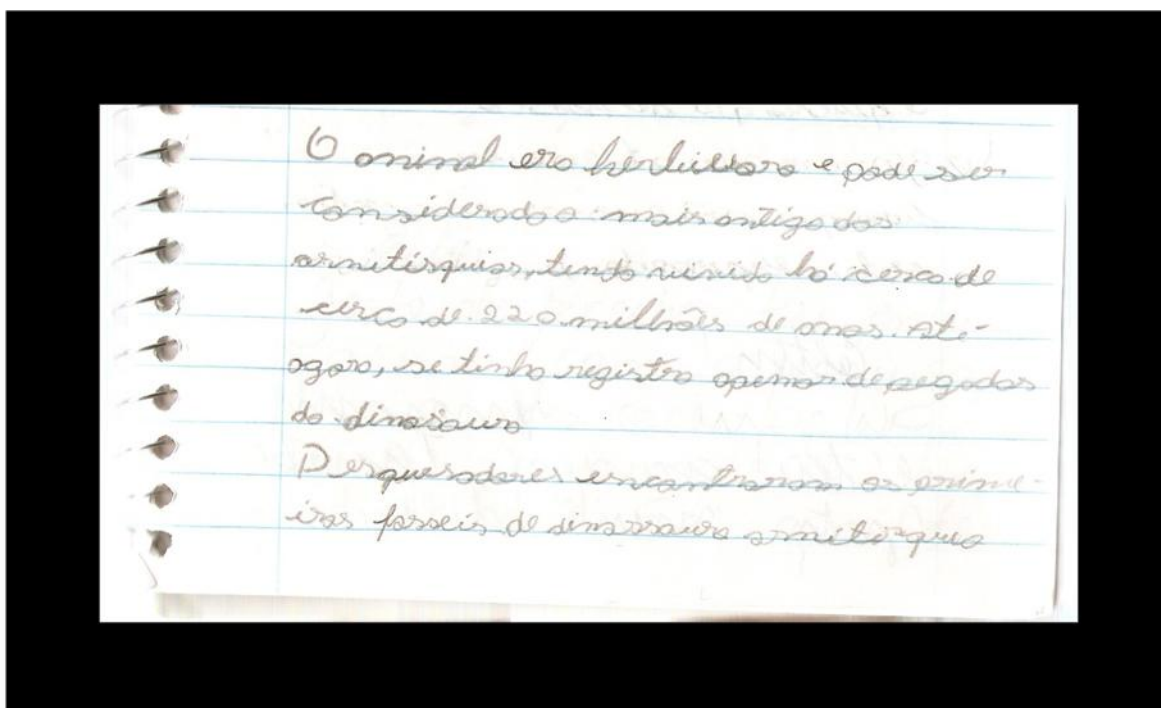 O animal era herbívoro e pode ser
considerado o mais antigo dos
ornitísquios, tendo vivido há cerca de
cerca de 220 milhões de anos. Até
agora, se tinha registro apenas de pegadas
do dinosauro
Pesquesadores encontraram os prime-
iros fosseis de dinossauro ornitisquio